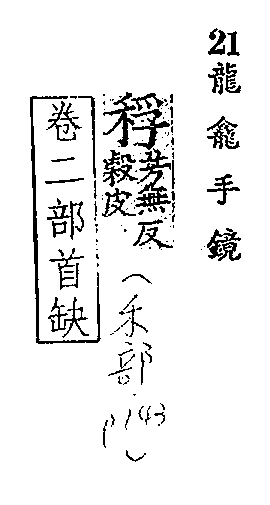 21龍龕手鏡
稃芳無反
穀皮
(禾部
P143)
卷二部首缺